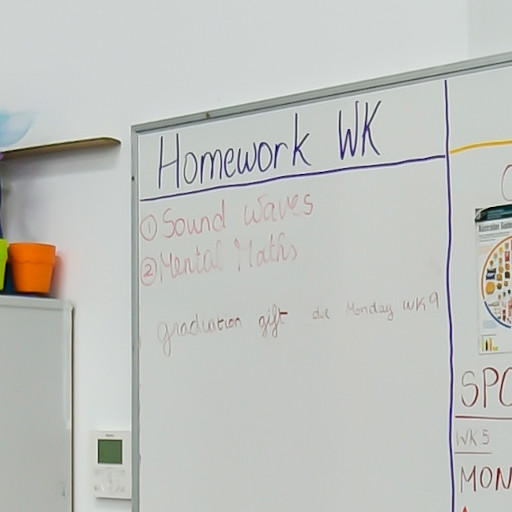 Homework WK
① Sound Waves
② Mental Maths
graduation gift due Monday WK9
SPO
WK 5
MON